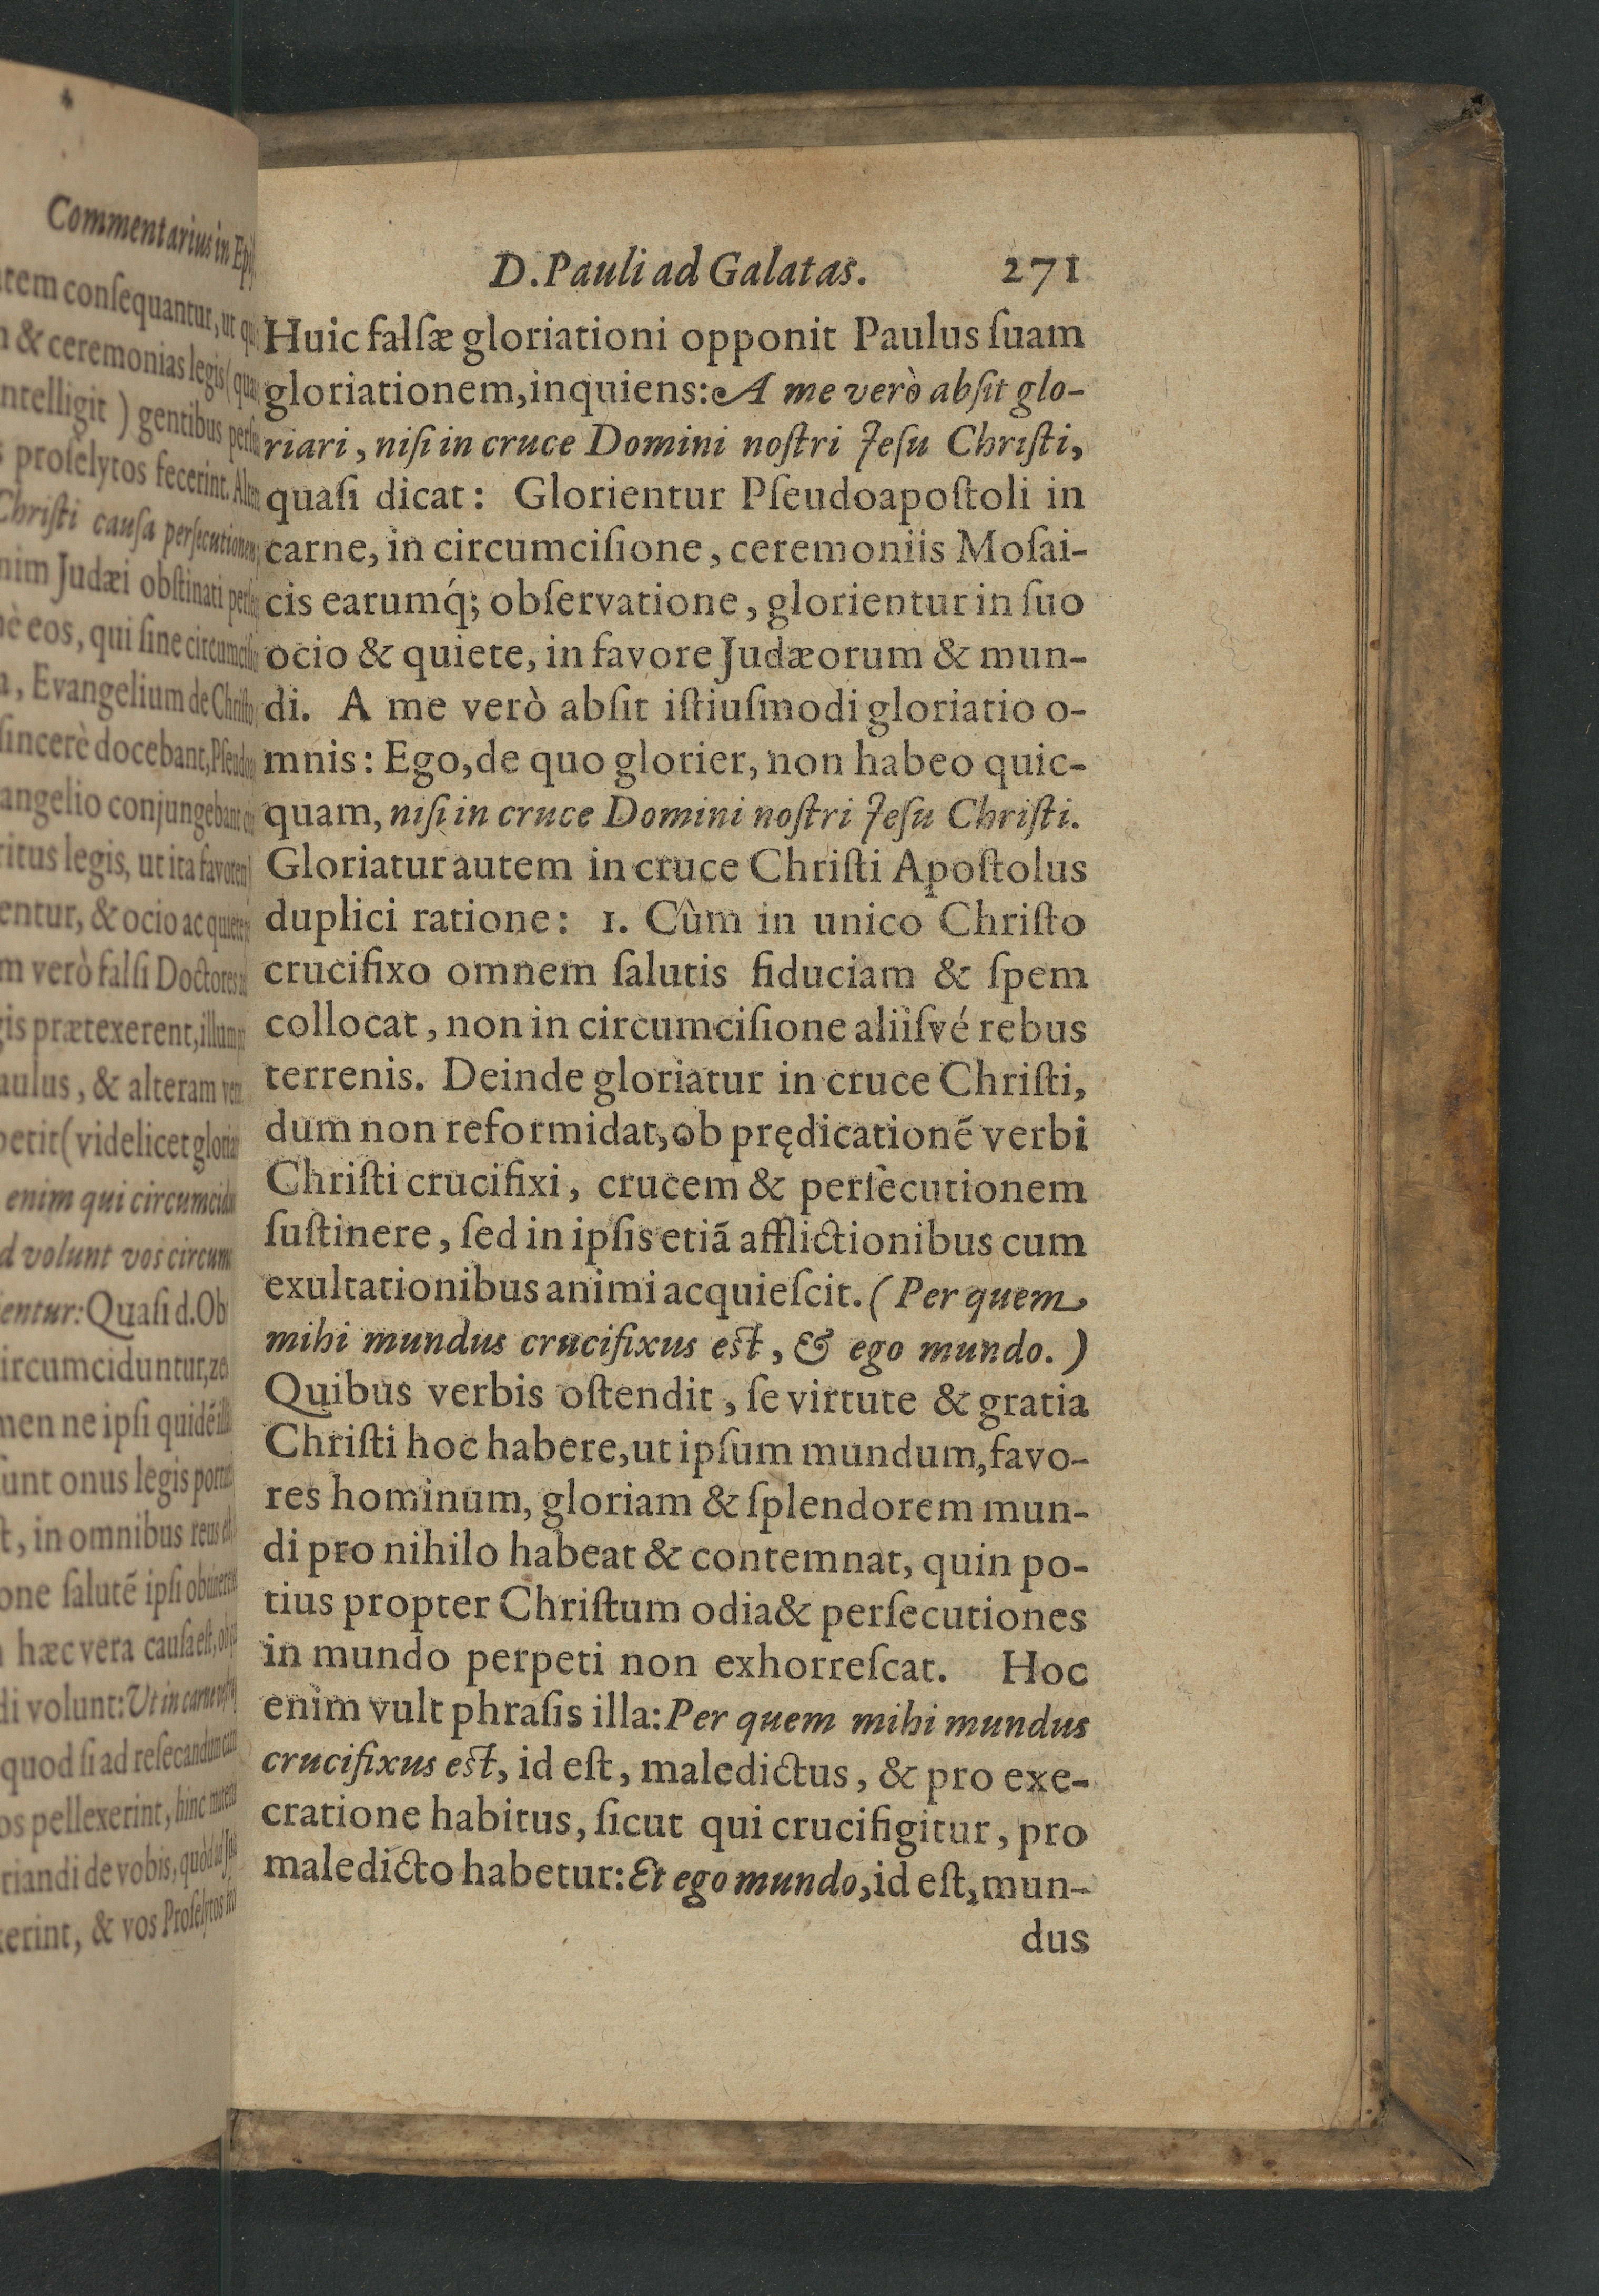 Commentarius in
tem consequantur, ut
& ceremonias legis
ntelligit ) gentibus
proselytos fecerint.
Christi causa persecutionem
nim Judæi obstinati
eos, qui sine
, Evangelium de Christo
sincerè docebant,
angelio conjungebant
ritus legis, ut ita
entur, & ocio ac
m verò falsi Doctores
gis prætexerent,
aulus, & alteram
petit( videlicet
enim qui
d volunt vos
entur: Quasi d. Ob
ircumciduntur,
men ne ipsi quidē
sunt onus legis
t, in omnibus reus
one salutē ipsi
hæc vera causa est,
di volunt: Ut in
quod si ad
os pellexerint, hinc
riandi de vobis,
erint, & vos
D. Pauli ad Galatas. 271
Huic falsæ gloriationi opponit Paulus ſuam
gloriationem, inquiens: A me verò abſit glo-
riari, niſi in cruce Domini noſtri Jeſu Chriſti,
quaſi dicat: Glorientur Pſeudoapoſtoli in
carne, in circumciſione, ceremoniis Moſai-
cis earumq́; obſervatione, glorientur in ſuo
ocio & quiete, in favore Judæorum & mun-
di. A me verò abſit iſtiuſmodi gloriatio o-
mnis: Ego, de quo glorier, non habeo quic-
quam, niſi in cruce Domini noſtri Jeſu Chriſti.
Gloriatur autem in cruce Chriſti Apoſtolus
duplici ratione: 1. Cùm in unico Chriſto
crucifixo omnem ſalutis fiduciam & ſpem
collocat, non in circumciſione aliiſvé rebus
terrenis. Deinde gloriatur in cruce Chriſti,
dum non reformidat, ob prędicationē verbi
Chriſti crucifixi, crucem & perſecutionem
ſuſtinere, ſed in ipſis etiā afflictionibus cum
exultationibus animi acquieſcit. (Per quem
mihi mundus crucifixus eſt, & ego mundo.)
Quibus verbis oſtendit, ſe virtute & gratia
Chriſti hoc habere, ut ipſum mundum, favo-
res hominum, gloriam & ſplendorem mun-
di pro nihilo habeat & contemnat, quin po-
tius propter Chriſtum odia & perſecutiones
in mundo perpeti non exhorreſcat. Hoc
enim vult phraſis illa: Per quem mihi mundus
crucifixus eſt, id eſt, maledictus, & pro exe-
cratione habitus, ſicut qui crucifigitur, pro
maledicto habetur: Et ego mundo, id eſt, mun-
dus